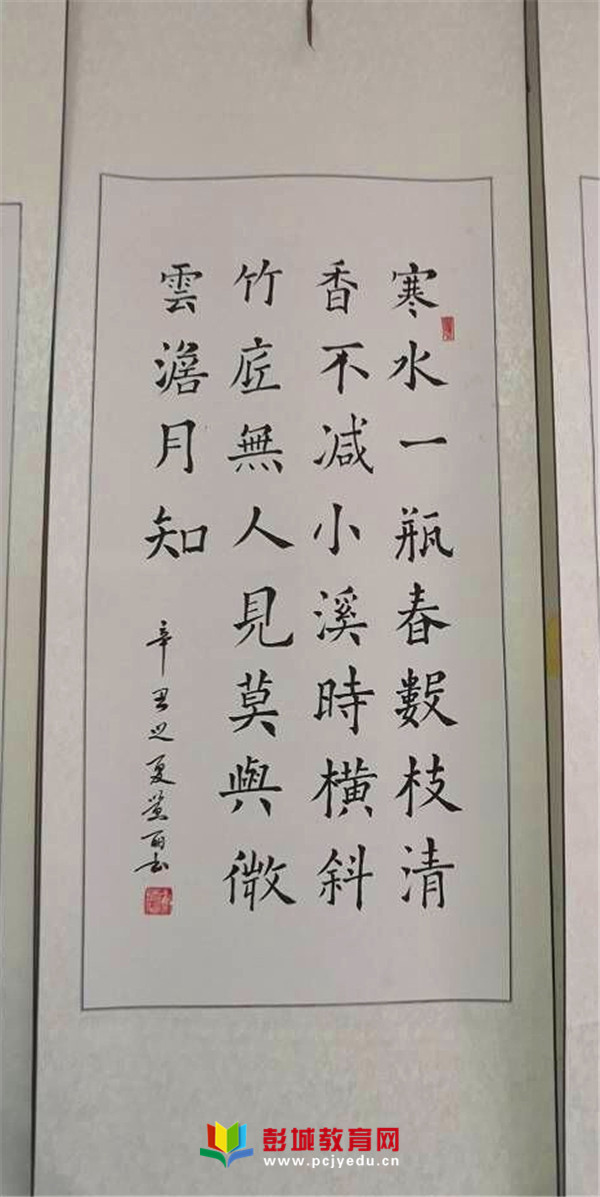 寒水一瓶春數枝清
香不減小溪時橫斜
竹底無人見莫與微
雲澹月知
辛丑之夏
彭城教育网
www.pcjyedu.cn